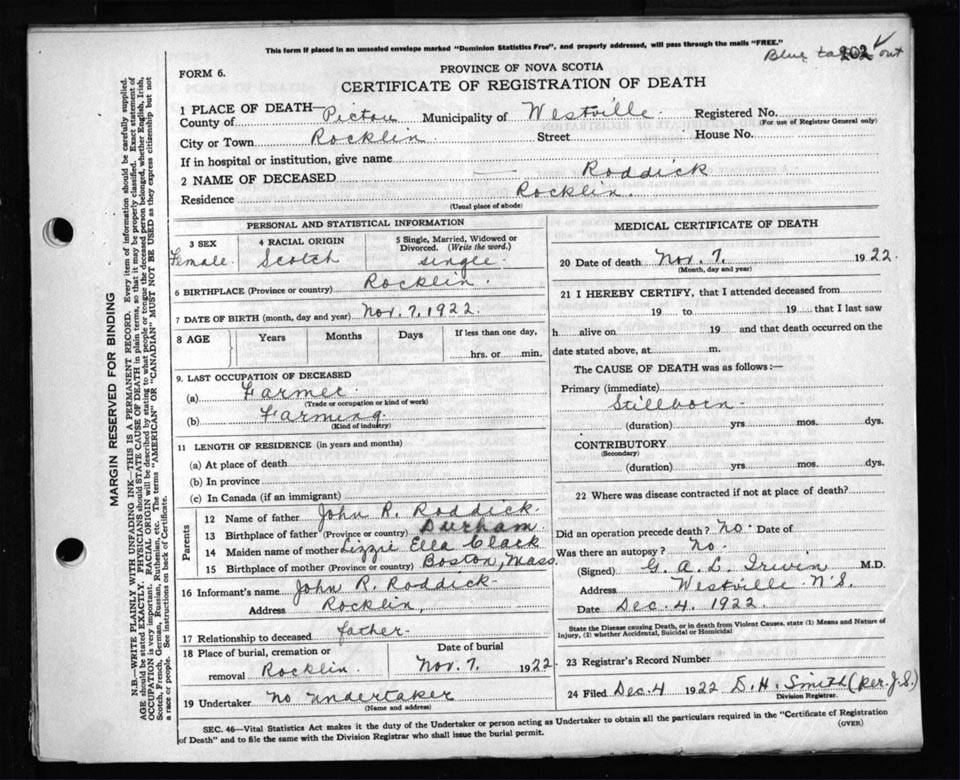 This form if placed in an unsealed envelope marked "Dominion Statistics Free", and properly addressed, will pass through the mails "FREE."
202
Blue out
FORM 6.
PROVINCE OF NOVA SCOTIA
CERTIFICATE OF REGISTRATION OF DEATH
1 PLACE OF DEATH—
County of Pictou Municipality of Westville. Registered No.
(For use of Registrar General only)
City or Town Rocklin Street House No.
If in hospital or institution, give name
2 NAME OF DECEASED — Roddick
Residence Rocklin.
(Usual place of abode)
PERSONAL AND STATISTICAL INFORMATION
3 SEX 4 RACIAL ORIGIN 5 Single, Married, Widowed or Divorced. (Write the word.)
Female. Scotch single.
6 BIRTHPLACE (Province or country) Rocklin.
7 DATE OF BIRTH (month, day and year) Nov. 7. 1922.
8 AGE Years Months Days If less than one day,
hrs. or min.
9. LAST OCCUPATION OF DECEASED
(a) Farmer
(Trade or occupation or kind of work)
(b) Farming.
(Kind of industry)
11 LENGTH OF RESIDENCE (in years and months)
(a) At place of death
(b) In province
(c) In Canada (if an immigrant)
Parents
12 Name of father John R. Roddick.
13 Birthplace of father (Province or country) Durham.
14 Maiden name of mother Lizzie Ella Clark
15 Birthplace of mother (Province or country) Boston, Mass.
16 Informant's name John R. Roddick.
Address Rocklin,
17 Relationship to deceased father.
18 Place of burial, cremation or removal Rocklin. Date of burial Nov. 7. 1922.
19 Undertaker no undertaker
(Name and address)
MEDICAL CERTIFICATE OF DEATH
20 Date of death Nov. 7. 1922.
(Month, day and year)
21 I HEREBY CERTIFY, that I attended deceased from
19 to 19 that I last saw
h alive on 19 and that death occurred on the
date stated above, at m.
The CAUSE OF DEATH was as follows:—
Primary (immediate)
Stillborn.
(duration) yrs mos. dys.
CONTRIBUTORY
(Secondary)
(duration) yrs mos. dys.
22 Where was disease contracted if not at place of death?
Did an operation precede death? No. Date of
Was there an autopsy? No.
(Signed) G. A. L. Irwin M.D.
Address Westville N.S.
Date Dec. 4. 1922.
State the Disease causing Death, or in death from Violent Causes, state (1) Means and Nature of
Injury, (2) whether Accidental, Suicidal or Homicidal
23 Registrar's Record Number
24 Filed Dec. 4 1922 D. H. Smith (per. J.S.)
Division Registrar.
SEC. 46—Vital Statistics Act makes it the duty of the Undertaker or person acting as Undertaker to obtain all the particulars required in the "Certificate of Registration
of Death" and to file the same with the Division Registrar who shall issue the burial permit.
(OVER)
MARGIN RESERVED FOR BINDING
N.B.—WRITE PLAINLY WITH UNFADING INK—THIS IS A PERMANENT RECORD. Every item of information should be carefully supplied.
AGE should be stated EXACTLY. PHYSICIANS should STATE CAUSE OF DEATH in plain terms, so that it may be properly classified. Exact statement of
OCCUPATION is very important. RACIAL ORIGIN will be described by stating to what people or tongue the deceased person belonged, whether English, Irish,
Scotch, French, German, Russian, Ruthenian, etc. The terms "AMERICAN" OR "CANADIAN" MUST NOT BE USED as they express citizenship but not
a race or people. See instructions on back of Certificate.